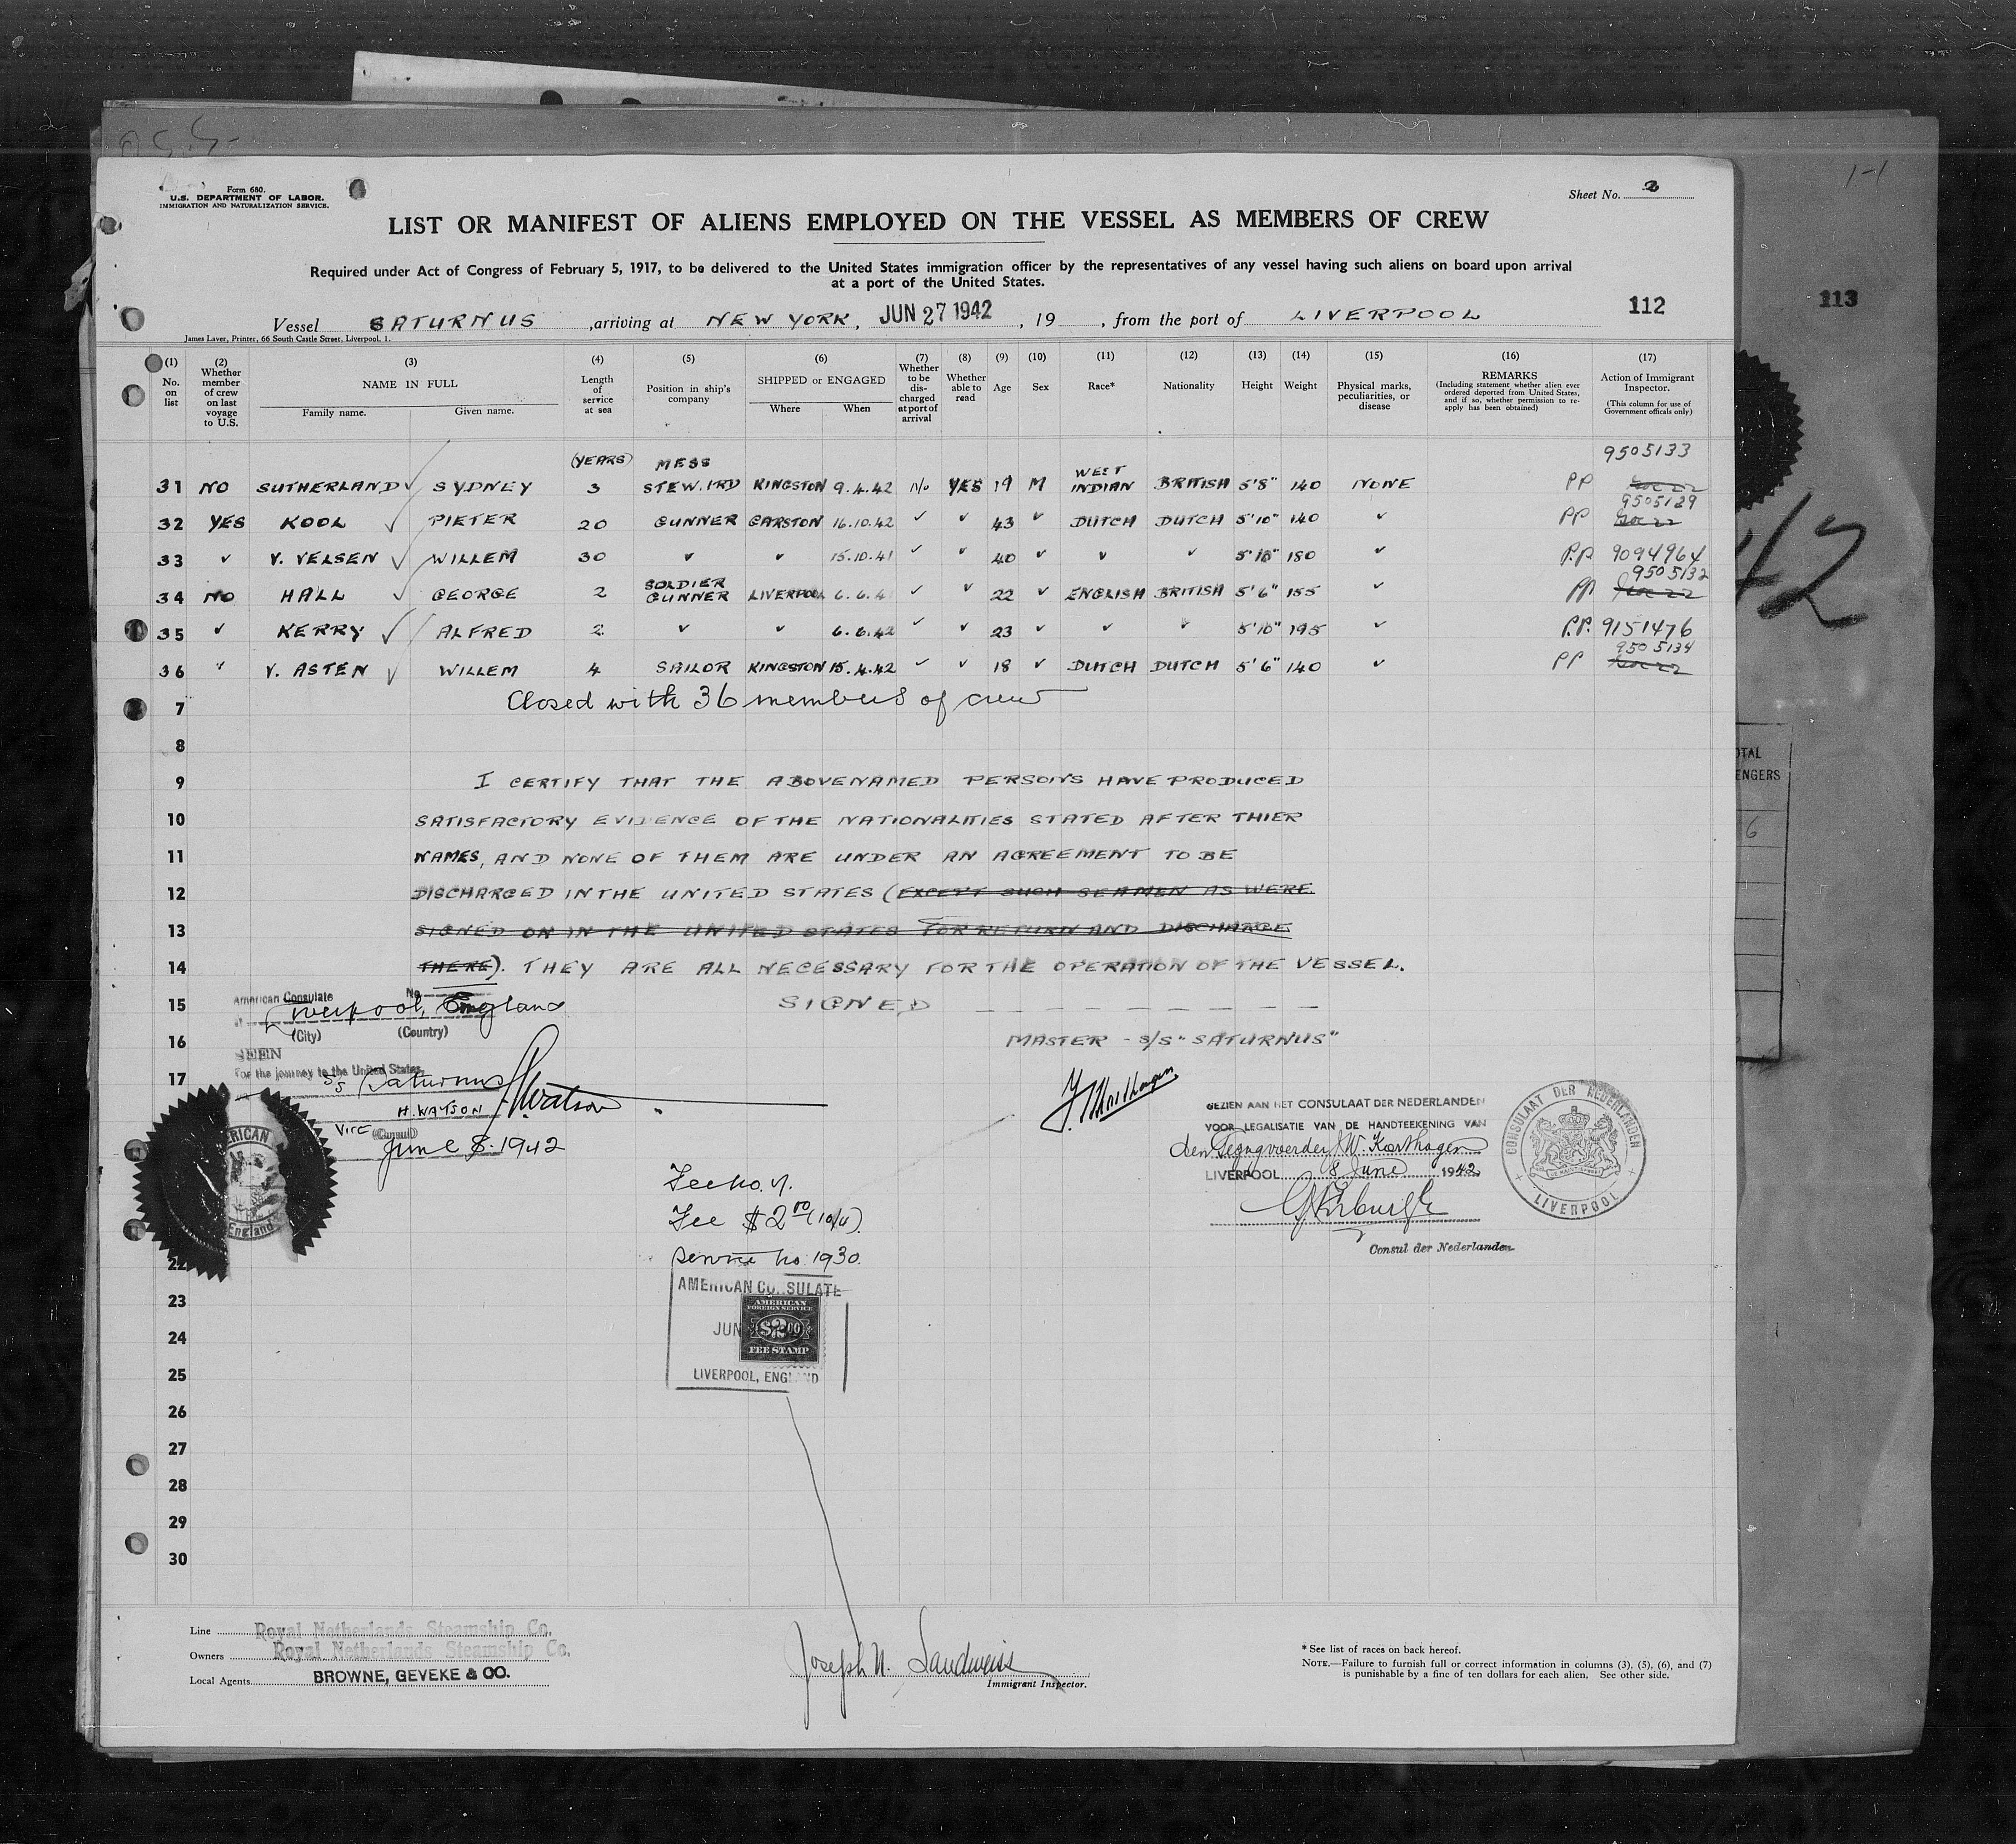 Form 680.
U.S. DEPARTMENT OF LABOR.
IMMIGRATION AND NATURALIZATION SERVICE.
Sheet No. 2
LIST OR MANIFEST OF ALIENS EMPLOYED ON THE VESSEL AS MEMBERS OF CREW
Required under Act of Congress of February 5, 1917, to be delivered to the United States immigration officer by the representatives of any vessel having such aliens on board upon arrival
at a port of the United States.
112
113
Vessel SATURNUS, arriving at NEW YORK, JUN 27 1942, 19, from the port of LIVERPOOL
James Laver, Printer, 66 South Castle Street, Liverpool, 1.
(1) No. on list
(2) Whether member of crew on last voyage to U.S.
(3) NAME IN FULL Family name. Given name.
(4) Length of service at sea
(5) Position in ship's company
(6) SHIPPED or ENGAGED Where When
(7) Whether to be discharged at port of arrival
(8) Whether able to read
(9) Age
(10) Sex
(11) Race*
(12) Nationality
(13) Height
(14) Weight
(15) Physical marks, peculiarities, or disease
(16) REMARKS (Including statement whether alien ever ordered deported from United States, and if so, whether permission to re-apply has been obtained)
(17) Action of Immigrant Inspector. (This column for use of Government officals only)
(YEARS) MESS 9505133
31 NO SUTHERLAND ✓ SYDNEY 3 STEW.IRD KINGSTON 9.4.42 N/o YES 19 M WEST INDIAN BRITISH 5'8" 140 NONE PP
9505129
32 YES KOOL ✓ PIETER 20 GUNNER GARSTON 16.10.42 ✓ ✓ 43 ✓ DUTCH DUTCH 5'10" 140 ✓ PP
33 ✓ V. VELSEN ✓ WILLEM 30 ✓ ✓ 15.10.41 ✓ ✓ 40 ✓ ✓ ✓ 5'10" 180 ✓ P.P. 9094964
9505132
34 NO HALL ✓ GEORGE 2 SOLDIER GUNNER LIVERPOOL 6.6.4 ✓ ✓ 22 ✓ ENGLISH BRITISH 5'6" 155 ✓ PP
35 ✓ KERRY ✓ ALFRED 2 ✓ ✓ 6.6.42 ✓ ✓ 23 ✓ ✓ ✓ 5'10" 195 ✓ P.P. 9151476
9505134
36 ✓ V. ASTEN ✓ WILLEM 4 SAILOR KINGSTON 15.4.42 ✓ ✓ 18 ✓ DUTCH DUTCH 5'6" 140 ✓ PP
7 Closed with 36 members of crew
8
9 I CERTIFY THAT THE ABOVENAMED PERSONS HAVE PRODUCED
10 SATISFACTORY EVIDENCE OF THE NATIONALITIES STATED AFTER THIER
11 NAMES, AND NONE OF THEM ARE UNDER AN AGREEMENT TO BE
12 DISCHARGED IN THE UNITED STATES (EXCEPT SUCH SEAMEN AS WERE
13 SIGNED ON IN THE UNITED STATES FOR RETURN AND DISCHARGE
14 THERE). THEY ARE ALL NECESSARY FOR THE OPERATION OF THE VESSEL.
15 SIGNED
16 MASTER - S/S "SATURNUS"
17
American Consulate No.
Liverpool, England
(City) (Country)
SEEN
For the journey to the United States
SS Saturnus
H. WATSON HWatson
Vice (Consul)
June 8. 1942
AMERICAN
England
GEZIEN AAN HET CONSULAAT DER NEDERLANDEN
VOOR LEGALISATIE VAN DE HANDTEEKENING VAN
den Gezagvoerder W. Korthagen
LIVERPOOL 8 June 1942
Consul der Nederlanden
CONSULAAT DER NEDERLANDEN
LIVERPOOL
Fee $2.00 (10/4)
Service No. 1930.
AMERICAN CONSULATE
JUN
AMERICAN
FOREIGN SERVICE
$2.00
FEE STAMP
LIVERPOOL, ENGLAND
22
23
24
25
26
27
28
29
30
Line Royal Netherlands Steamship Co.
Owners Royal Netherlands Steamship Co.
Local Agents BROWNE, GEVEKE & CO.
Joseph N. Sandweiss
Immigrant Inspector.
* See list of races on back hereof.
NOTE.—Failure to furnish full or correct information in columns (3), (5), (6), and (7)
is punishable by a fine of ten dollars for each alien. See other side.